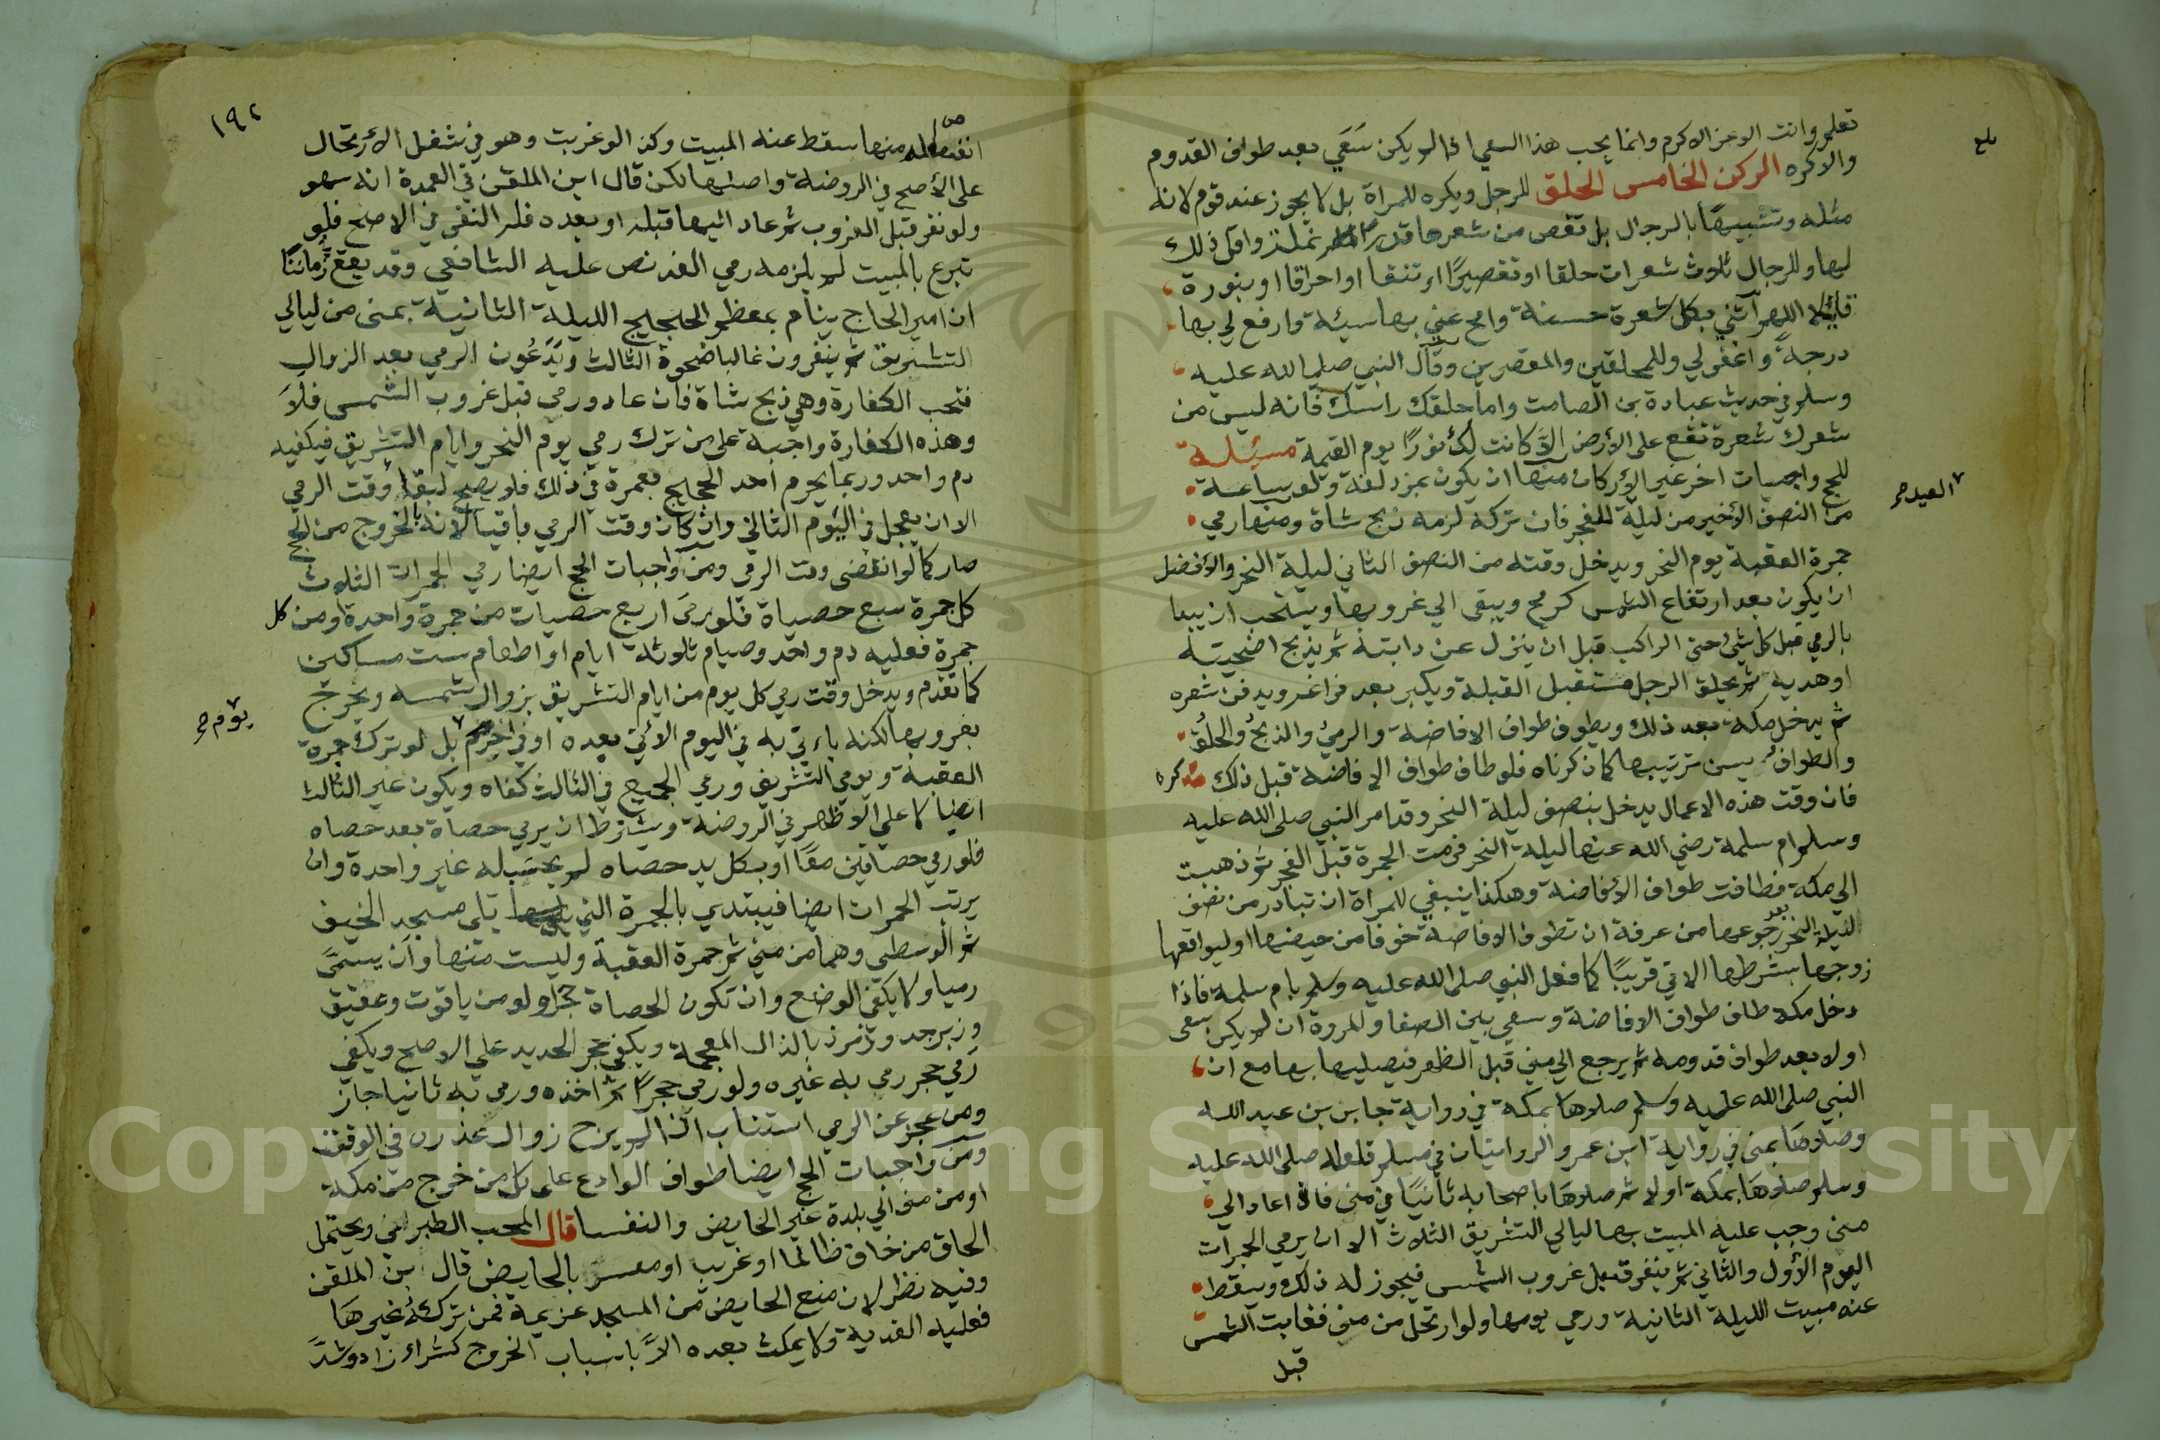 تعلم وانت الاعز الاكرم وانما يجب هذا السعي اذا لم يكن سَعَي بعد طواف القدوم
والاكره الركن الخامس الحلق للرجل ويكره للمراة بل لا يجوز عند قوم لانه
مثله وتشبيهًا بالرجال بل تقص من شعرها قدر انملة واقل ذلك
لها وللرجال ثلاث شعرات حلقا او تقصيرًا او نتفا او احراقا او بنورة
قائلا اللهم آتني بكل شعرة حسنة وامح عني بها سيئة وارفع لي بها
درجة واغفر لي وللمحلقين والمقصرين وقال النبي صلى الله عليه
وسلم في حديث عبادة بن الصامت واما حلقك راسك فانه ليس من
شعرك شعرة تقع على الأرض الا كانت لك نورًا يوم القيمة مسئلة
للحج واجبات اخر غير الأركان منها ان يكون بمزدلفة ولو ساعة
من النصف الأخير من ليلة للفجر فان تركه لزمه ذبح شاة ومنها رمي
العيد صح
جمرة العقبة يوم النحر ويدخل وقته من النصف الثاني ليلة النحر والأفضل
ان يكون بعد ارتفاع الشمس كرمح ويبقى الي غروبها ويستحب ان يبدا
بالرمي قبل كل شئ حتى الراكب قبل ان ينزل عن دابته ثم يذبح اضحيته
او هديه ثم يحلق الرجل مستقبل القبلة ويكبر بعد فراغه ويدفن شعره
ثم يدخل مكة بعد ذلك ويطوف طواف الافاضة والرمي والذبح والحلق
والطواف يسن ترتيبها كما ذكرناه فلو طاف طواف الافاضة قبل ذلك
فان وقت هذه الاعمال يدخل بنصف ليلة النحر وقد امر النبي صلى الله عليه
وسلم ام سلمة رضي الله عنها ليلة النحر فرمت الجمرة قبل الفجر ثم ذهبت
الي مكة فطافت طواف الأفاضة وهكذا ينبغي للمراة ان تبادر من نصف
ليلة النحر بعد رجوعها من عرفة ان تطوف الافاضة خوفا من حيضها او ليواقعها
زوجها بشرطها الاتي قريبًا كما فعل النبي صلى الله عليه وسلم بام سلمة فاذا
دخل مكة طاف طواف الافاضة وسعي بين الصفا والمروة ان لم يكن سعى
اولا بعد طواف قدومه ثم يرجع الي منى قبل الظهر فيصليها بها مع ان
النبي صلى الله عليه وسلم صلاها بمكة في رواية جابر بن عبد الله
وصلاها بمنى في رواية ابن عمر والروايتان في مسلم فلعله صلى الله عليه
وسلم صلاها بمكة اولا ثم صلاها باصحابه ثانيًا في منى فاذا عاد الي
منى وجب عليه المبيت بها ليالي التشريق الثلاث الا ان يرمي الجمرات
اليوم الأول والثاني ثم ينفر قبل غروب الشمس فيجوز له ذلك ويسقط
عنه مبيت الليلة الثانية ورمي يومها ولو ارتحل من منى فغابت الشمس
قبل
١٩٢
انفصاله منها سقط عنه المبيت وكذا لو غربت وهو في شغل الأرتحال
على الأصح في الروضة واصلها لكن قال ابن الملقن في العمدة انه سهو
ولو نفر قبل الغروب ثم عاد اليها قبله او بعده فله النفر في الاصح فلو
تبرع بالمبيت لم يلزمه رمي الغد نص عليه الشافعي وقد يقع زماننا
ان امير الحاج ينام بمعظم الحجيج الليلة الثانية بمنى من ليالي
التشريق ثم ينفرون غالبا ضحوة الثالث ويَدَعُون الرمي بعد الزوال
فتجب الكفارة وهي ذبح شاة فان عاد ورمي قبل غروب الشمس فلا
وهذه الكفارة واجبة على من ترك رمي يوم النحر وايام التشريق فيكفيه
دم واحد وربما يحرم احد الحجاج بعمرة في ذلك فلا يصح لبقاء وقت الرمي
الا ان يعجل في اليوم الثاني وان كان وقت الرمي باقيا لانه بالخروج من الحج
صار كما لو انقضى وقت الرمي ومن واجبات الحج ايضا رمي الجمرات الثلاث
كل جمرة سبع حصياة فلو رمى اربع حصيات من جمرة واحدة ومن كل
جمرة فعليه دم واحد وصيام ثلاثة ايام او اطعام ست مساكين
كما تقدم ويدخل وقت رمي كل يوم من ايام التشريق بزوال شمسه ويخرج
بغروبها لكنه ياءتي به في اليوم الاتي بعده او في اخرهم بل لو ترك جمرة
يوم صح
العقبة ويومي التشريق ورمي الجميع في الثالث كفاه ويكون غير الثالث
ايضا كما على الاظهر في الروضة ويشترط ان يرمي حصاة بعد حصاه
فلو رمي حصاتين معًا او بكل يد حصاه لم يحسب له غير واحدة وان
يرتب الجمرات ايضا فيبتدي بالجمرة التي تلي مسجد الخيف
ثم الوسطى وهما من منى ثم جمرة العقبة وليست منها وان يسمى
رميا ولا يكفي الوضع وان تكون الحصاة حجرا ولو من ياقوت وعقيق
وزبرجد وزمرذ بالذال المعجمة ويكفي حجر الحديد على الاصح ويكفي
رمي حجر رمي به غيره ولو رمي حجرًا ثم اخذه ورمي به ثانيا جاز
ومن عجز عن الرمي استناب اذا لم يرج زوال عذره في الوقت
ومن واجبات الحج ايضا طواف الوادع على كل من خرج من مكة
او من منى الي بلدة غير الحايض والنفسا قال المحب الطبري ويحتمل
الحاق من خاف ظالما او غريب او معسر بالحايض قال ابن الملقن
وفيه نظر لان منع الحايض من المسجد عزيمة فمن تركه غيرها
فعليه الفدية ولا يمكث بعده الا باسباب الخروج كشراء زاد وشدّ
Copyright © King Saud University